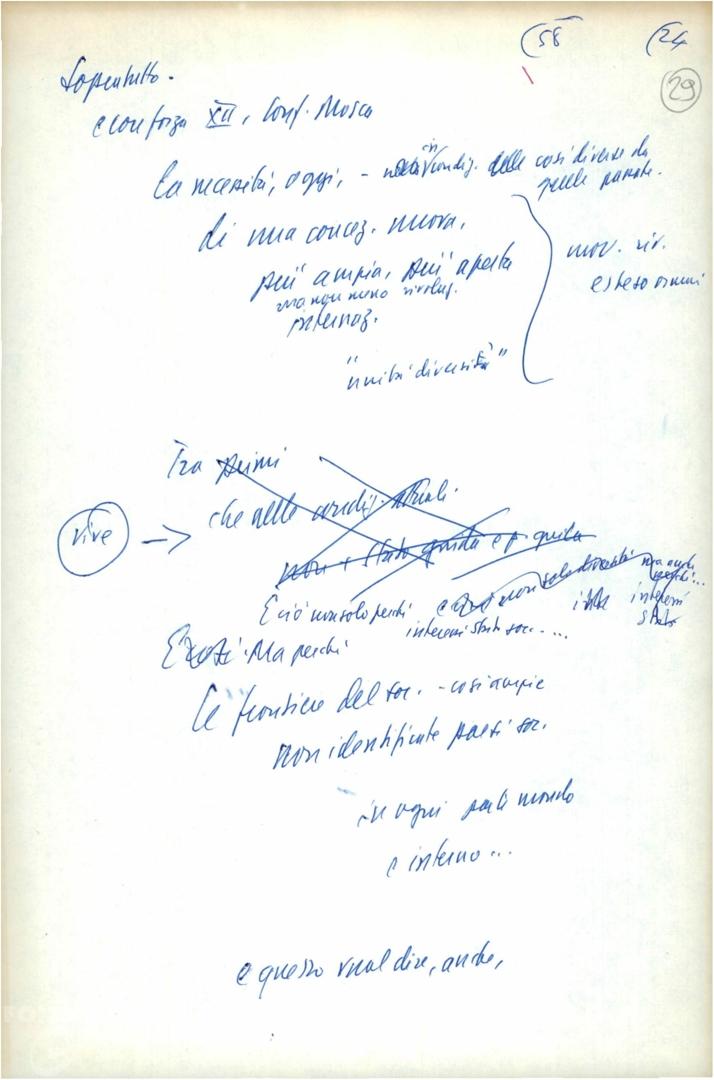 (58 (24
29
Soprattutto.
e con forza XII, Conf. Mosca
la necessità, oggi, - in condiz. così diverse da
quelle passate.
di una concez. nuova,
più ampia, più aperta
ma non meno rivoluz.
internaz.
"unità diversità"
mov. riv.
esteso ormai
Tra primi
che nelle condiz. attuali.
vive →
non + Stato guida e p. guida
E ciò non solo perché
interessi Stati soc. ...
ma anche
perché...
interessi
Stato
Ma perché
le frontiere del soc. - così ampie
non identificate paesi soc.
in ogni parte mondo
e interno...
e questo vuol dire, anche,